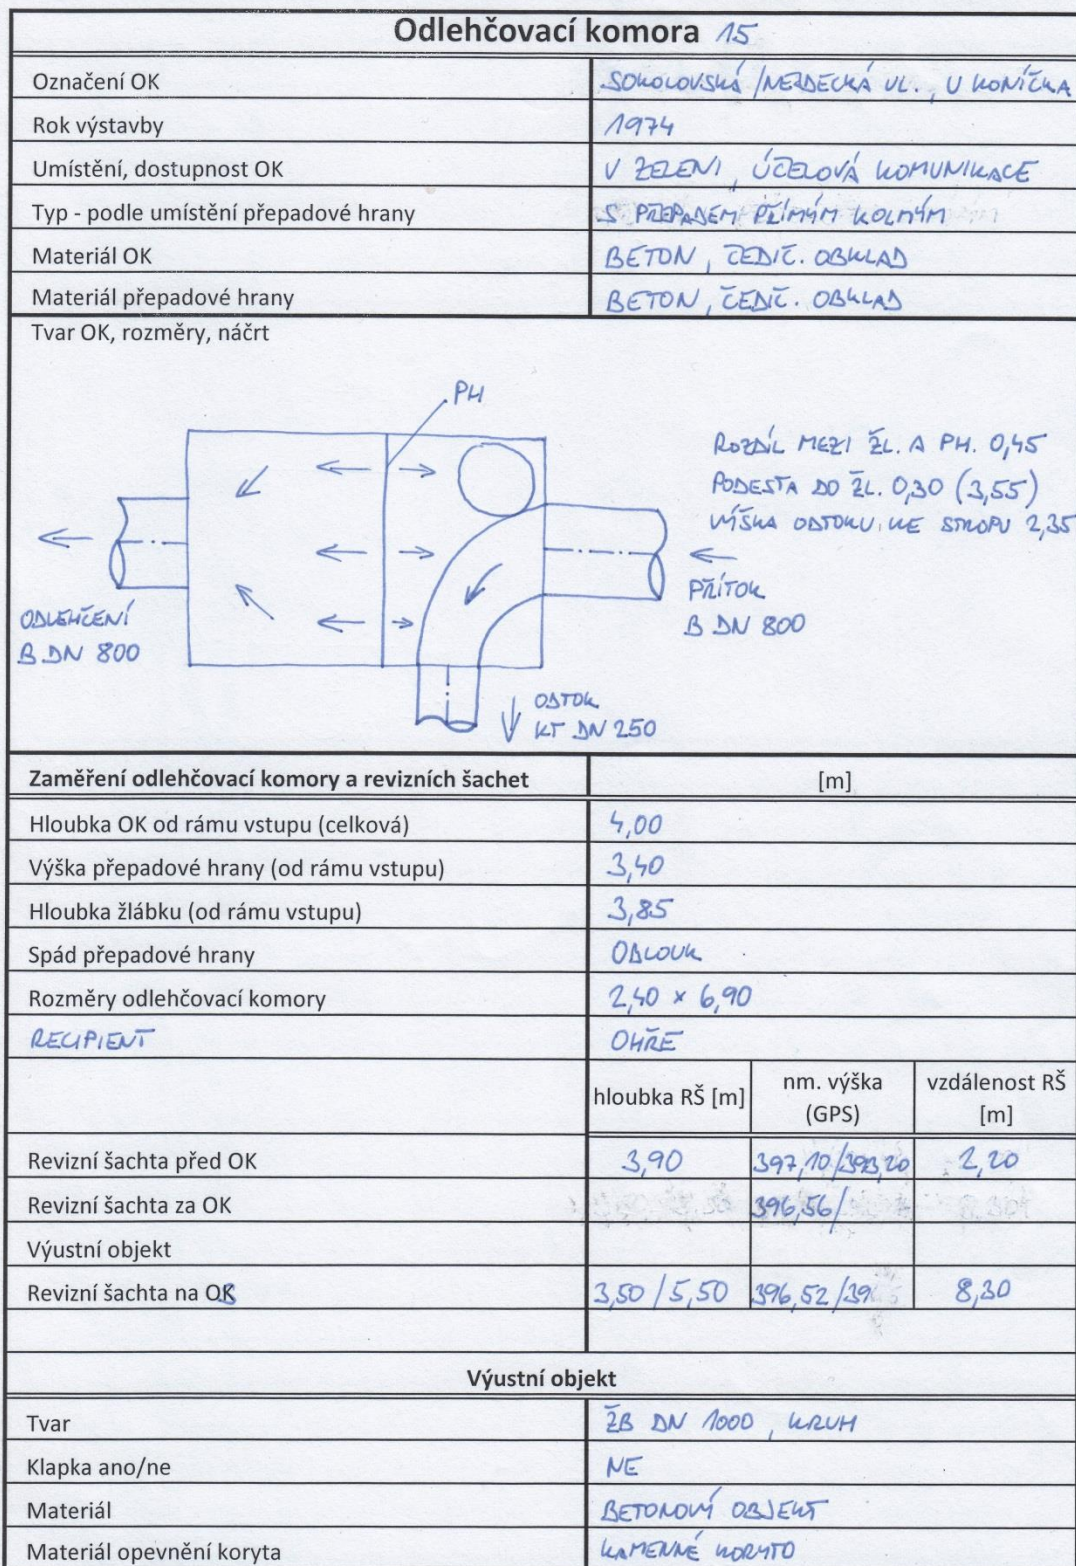 Odlehčovací komora 15
Označení OK SOKOLOVSKÁ / NEJDECKÁ UL., U KONÍČKA
Rok výstavby 1974
Umístění, dostupnost OK V ZELENI, ÚČELOVÁ KOMUNIKACE
Typ - podle umístění přepadové hrany S PŘEPADEM PŘÍMÝM KOLMÝM
Materiál OK BETON, ČEDIČ. OBKLAD
Materiál přepadové hrany BETON, ČEDIČ. OBKLAD
Tvar OK, rozměry, náčrt
PH
ROZDÍL MEZI ŽL. A PH. 0,45
PODESTA DO ŽL. 0,30 (3,55)
VÝŠKA ODTOKU KE STROPU 2,35
PŘÍTOK
B DN 800
ODLEHČENÍ
B DN 800
ODTOK
KT DN 250
Zaměření odlehčovací komory a revizních šachet [m]
Hloubka OK od rámu vstupu (celková) 4,00
Výška přepadové hrany (od rámu vstupu) 3,40
Hloubka žlábku (od rámu vstupu) 3,85
Spád přepadové hrany OBLOUK
Rozměry odlehčovací komory 2,40 x 6,90
RECIPIENT OHŘE
hloubka RŠ [m] nm. výška (GPS) vzdálenost RŠ [m]
Revizní šachta před OK 3,90 397,10/393,20 2,20
Revizní šachta za OK 396,56/
Výustní objekt
Revizní šachta na 3,50 / 5,50 396,52/ 8,30
Výustní objekt
Tvar ŽB DN 1000, KRUH
Klapka ano/ne NE
Materiál BETONOVÝ OBJEKT
Materiál opevnění koryta KAMENNÉ KORYTO